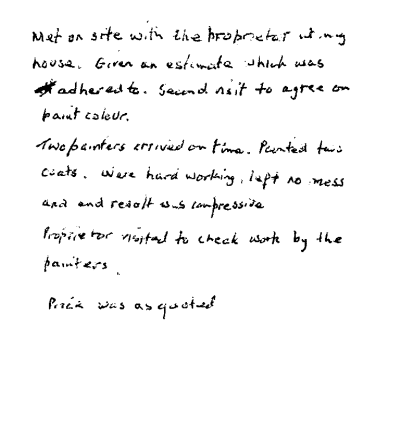 Met on site with the proprietor at my
house. Given an estimate which was
adhered to. Second visit to agree on
paint colour.
Two painters arrived on time. Painted two
coats. Were hard working, left no mess
and end result was impressive
Proprietor visited to check work by the
painters.
Price was as quoted